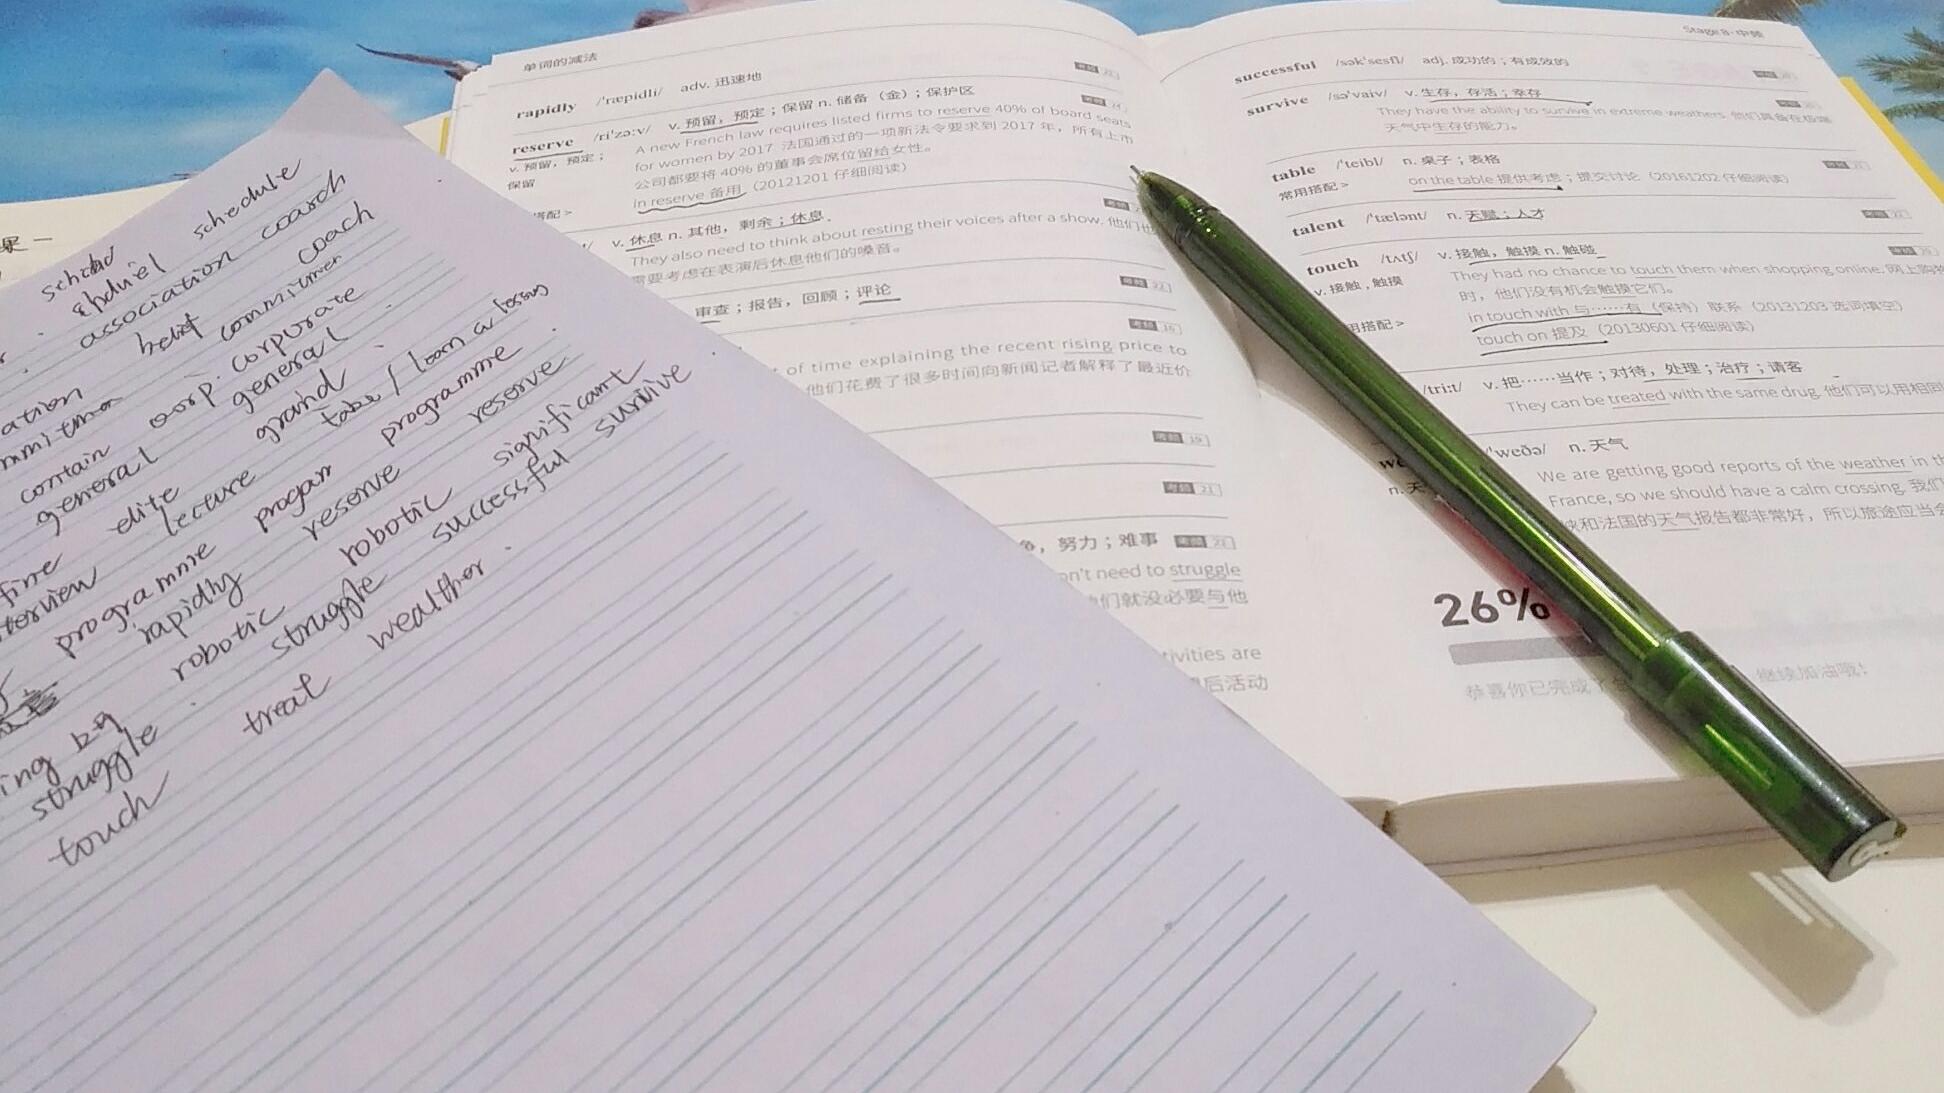 单词的减法
rapidly /ˈræpidli/ adv. 迅速地
reserve /riˈzəːv/ v. 预留，预定；保留 n. 储备（金）；保护区
v. 预留，预定；
保留
A new French law requires listed firms to reserve 40% of board seats
for women by 2017 法国通过的一项新法令要求到 2017 年，所有上市
公司都要将 40% 的董事会席位留给女性。
搭配 >
in reserve 备用（20121201 仔细阅读）
v. 休息 n. 其他，剩余；休息
They also need to think about resting their voices after a show. 他们也
需要考虑在表演后休息他们的嗓音。
审查；报告，回顾；评论
of time explaining the recent rising price to
他们花费了很多时间向新闻记者解释了最近价
，努力；难事
on't need to struggle
们就没必要与他
tivities are
后活动
Stage 8·中频
successful /səkˈsesfl/ adj. 成功的；有成效的
survive /səˈvaiv/ v. 生存，存活；幸存
They have the ability to survive in extreme weathers. 他们具备在极端
天气中生存的能力。
table /ˈteibl/ n. 桌子；表格
常用搭配 >
on the table 提供考虑；提交讨论（20161202 仔细阅读）
talent /ˈtælənt/ n. 天赋；人才
touch /tʌtʃ/ v. 接触，触摸 n. 触碰
v. 接触，触摸
They had no chance to touch them when shopping online. 网上购物
时，他们没有机会触摸它们。
用搭配 >
in touch with 与……有（保持）联系（20131203 选词填空）
touch on 提及（20130601 仔细阅读）
/triːt/ v. 把……当作；对待，处理；治疗；请客
They can be treated with the same drug. 他们可以用相同
we ˈweðə/ n. 天气
n. 天
We are getting good reports of the weather in th
France, so we should have a calm crossing. 我们
峡和法国的天气报告都非常好，所以旅途应当会
26%
恭喜你已完成了 继续加油哦！
schedule
association coach
coach
belief commitmen
contain corp. corporate
general general
elite grand
lecture take / learn a lesson
programme progam programme
rapidly reserve reserve
robotic robotic significant
struggle struggle successful survive
touch treat wealther